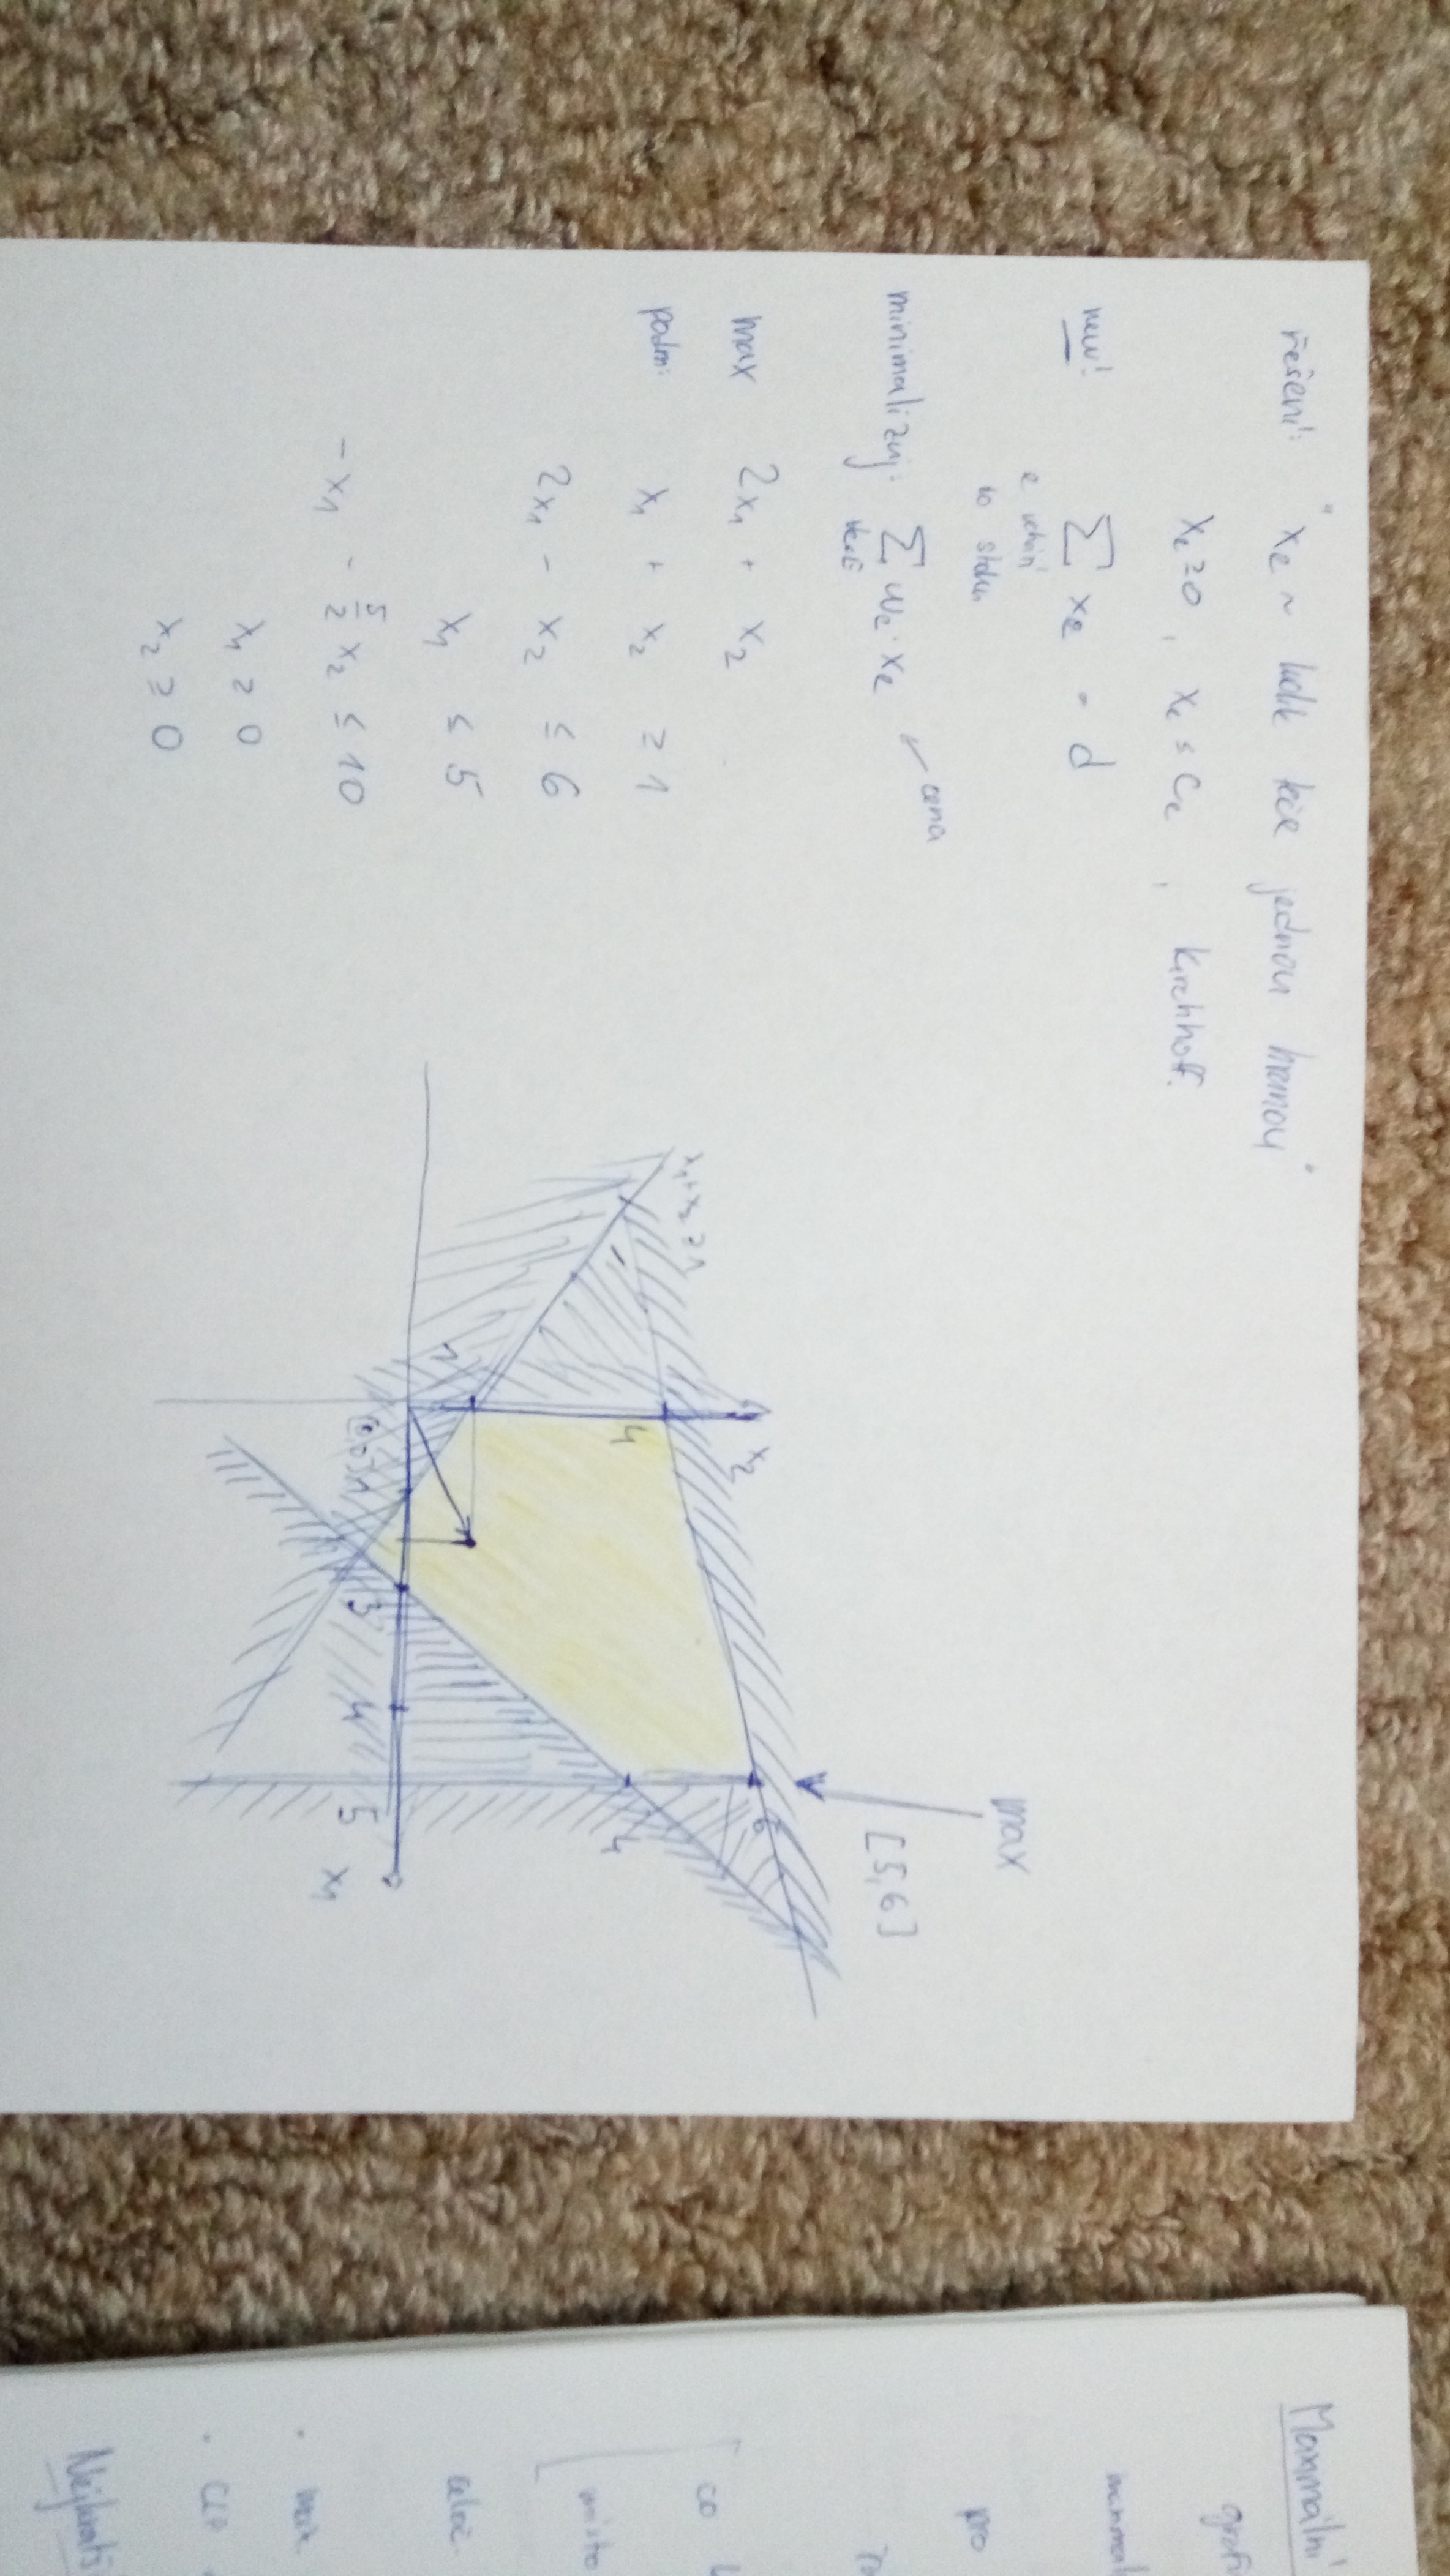 řešení: "xe ~ kolik teče jednou hranou"
xe ≥ 0 , xe ≤ ce , Kirchhoff.
new! Σ xe = d
e vchází
do stoku
minimalizuj: Σ we · xe ← cena
∀e∈E
max 2x1 + x2
podm: x1 + x2 ≥ 1
2x1 - x2 ≤ 6
x1 ≤ 5
-x1 - 5/2 x2 ≤ 10
x1 ≥ 0
x2 ≥ 0
max
[5,6]
x2
6
x1 + x2 ≥ 1
4
4
1
1
3
4
5
x1
Maximální
pro
co
místo
celoč.
max.